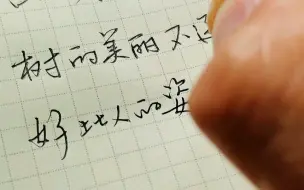 树的美丽不
好比人的姿